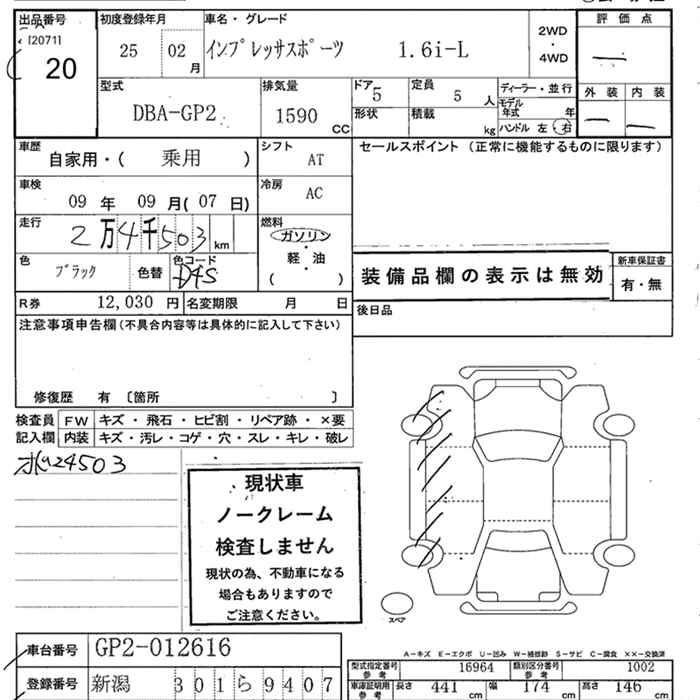 出品番号 初度登録年月 車名・グレード 評価点
[2071]
20
25 02 月 インプレッサスポーツ 1.6i-L 2WD・4WD
型式 排気量 ドア 定員 ディーラー・並行 外装 内装
DBA-GP2 1590 CC 5 5 人 モデル年式 年
形状 積載 kg ハンドル 左・右
車歴 自家用・( 乗用 ) シフト AT セールスポイント (正常に機能するものに限ります)
車検 09 年 09 月(07 日) 冷房 AC
走行 2万4千503 km 燃料 ガソリン・軽・油 ( )
色 ブラック 色替 色コード D4S 装備品欄の表示は無効 新車保証書 有・無
R券 12,030 円 名変期限 月 日 後日品
注意事項申告欄 (不具合内容等は具体的に記入して下さい)
修復歴 有 〔箇所 〕
検査員記入欄 FW キズ・飛石・ヒビ割・リペア跡・×要
内装 キズ・汚レ・コゲ・穴・スレ・キレ・破レ
24503
現状車
ノークレーム
検査しません
現状の為、不動車になる
場合もありますので
ご注意ください。
スペア
A-キズ E-エクボ U-凹み W-補修跡 S-サビ C-腐食 ××-交換済
車台番号 GP2-012616
型式指定番号 参考 16964 類別区分番号 参考 1002
登録番号 新潟 301ら9407
車庫証明用 参考 長さ 441 cm 幅 174 cm 高さ 146 cm